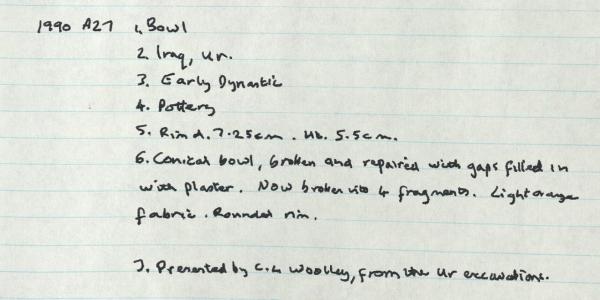 1990 A27 1. Bowl
2. Iraq, Ur.
3. Early Dynastic
4. Pottery
5. Rim d. 7.25cm. Ht. 5.5cm.
6. Conical bowl, broken and repaired with gaps filled in
with plaster. Now broken into 4 fragments. Light orange
fabric. Rounded rim.
7. Presented by C.L Woolley, from the Ur excavations.